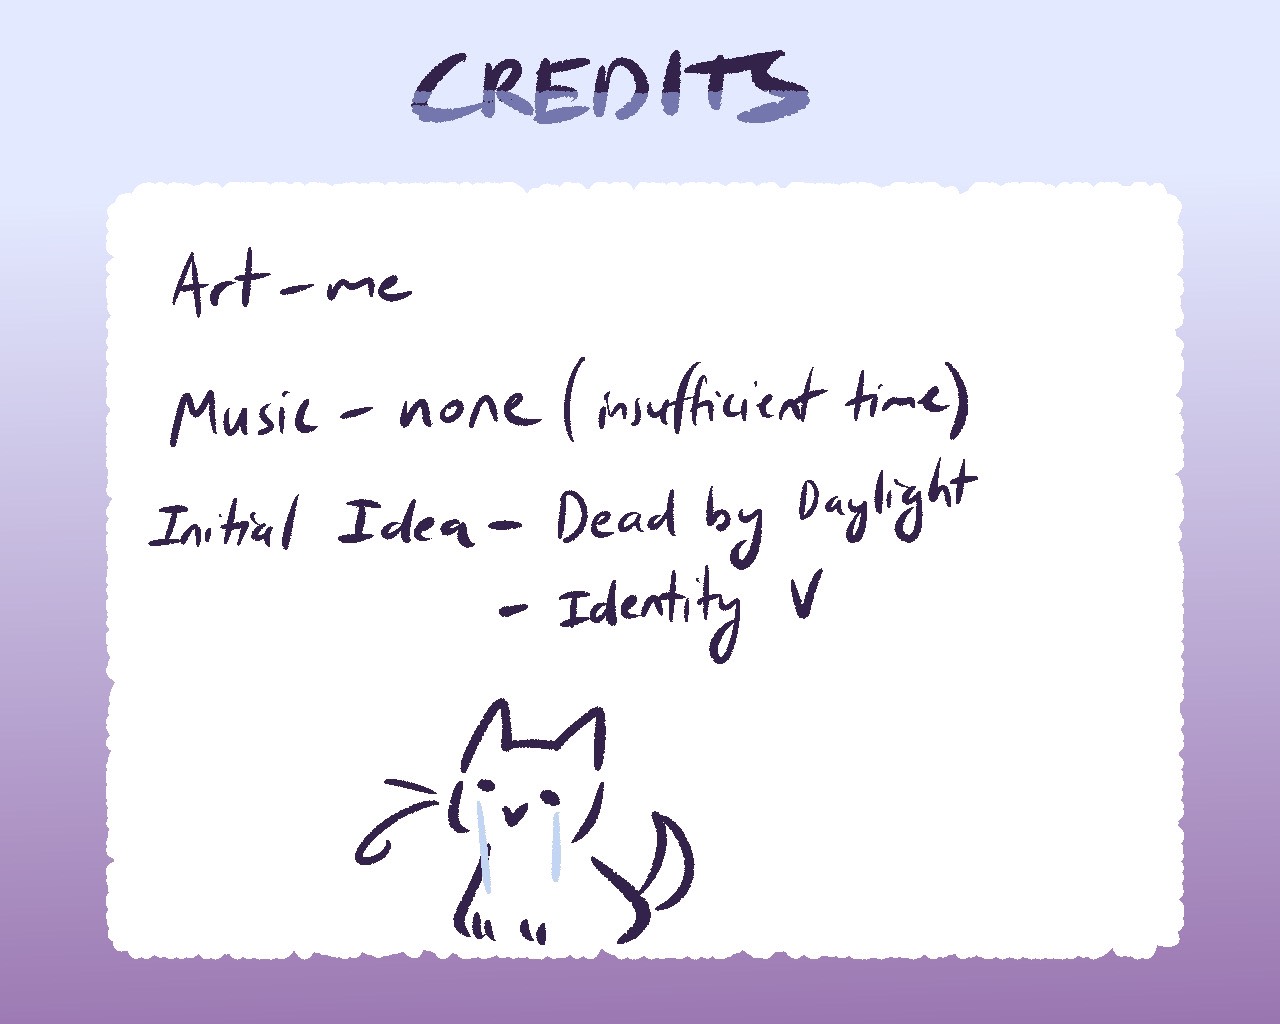 CREDITS
Art - me
Music - none (insufficient time)
Initial Idea - Dead by Daylight
- Identity V